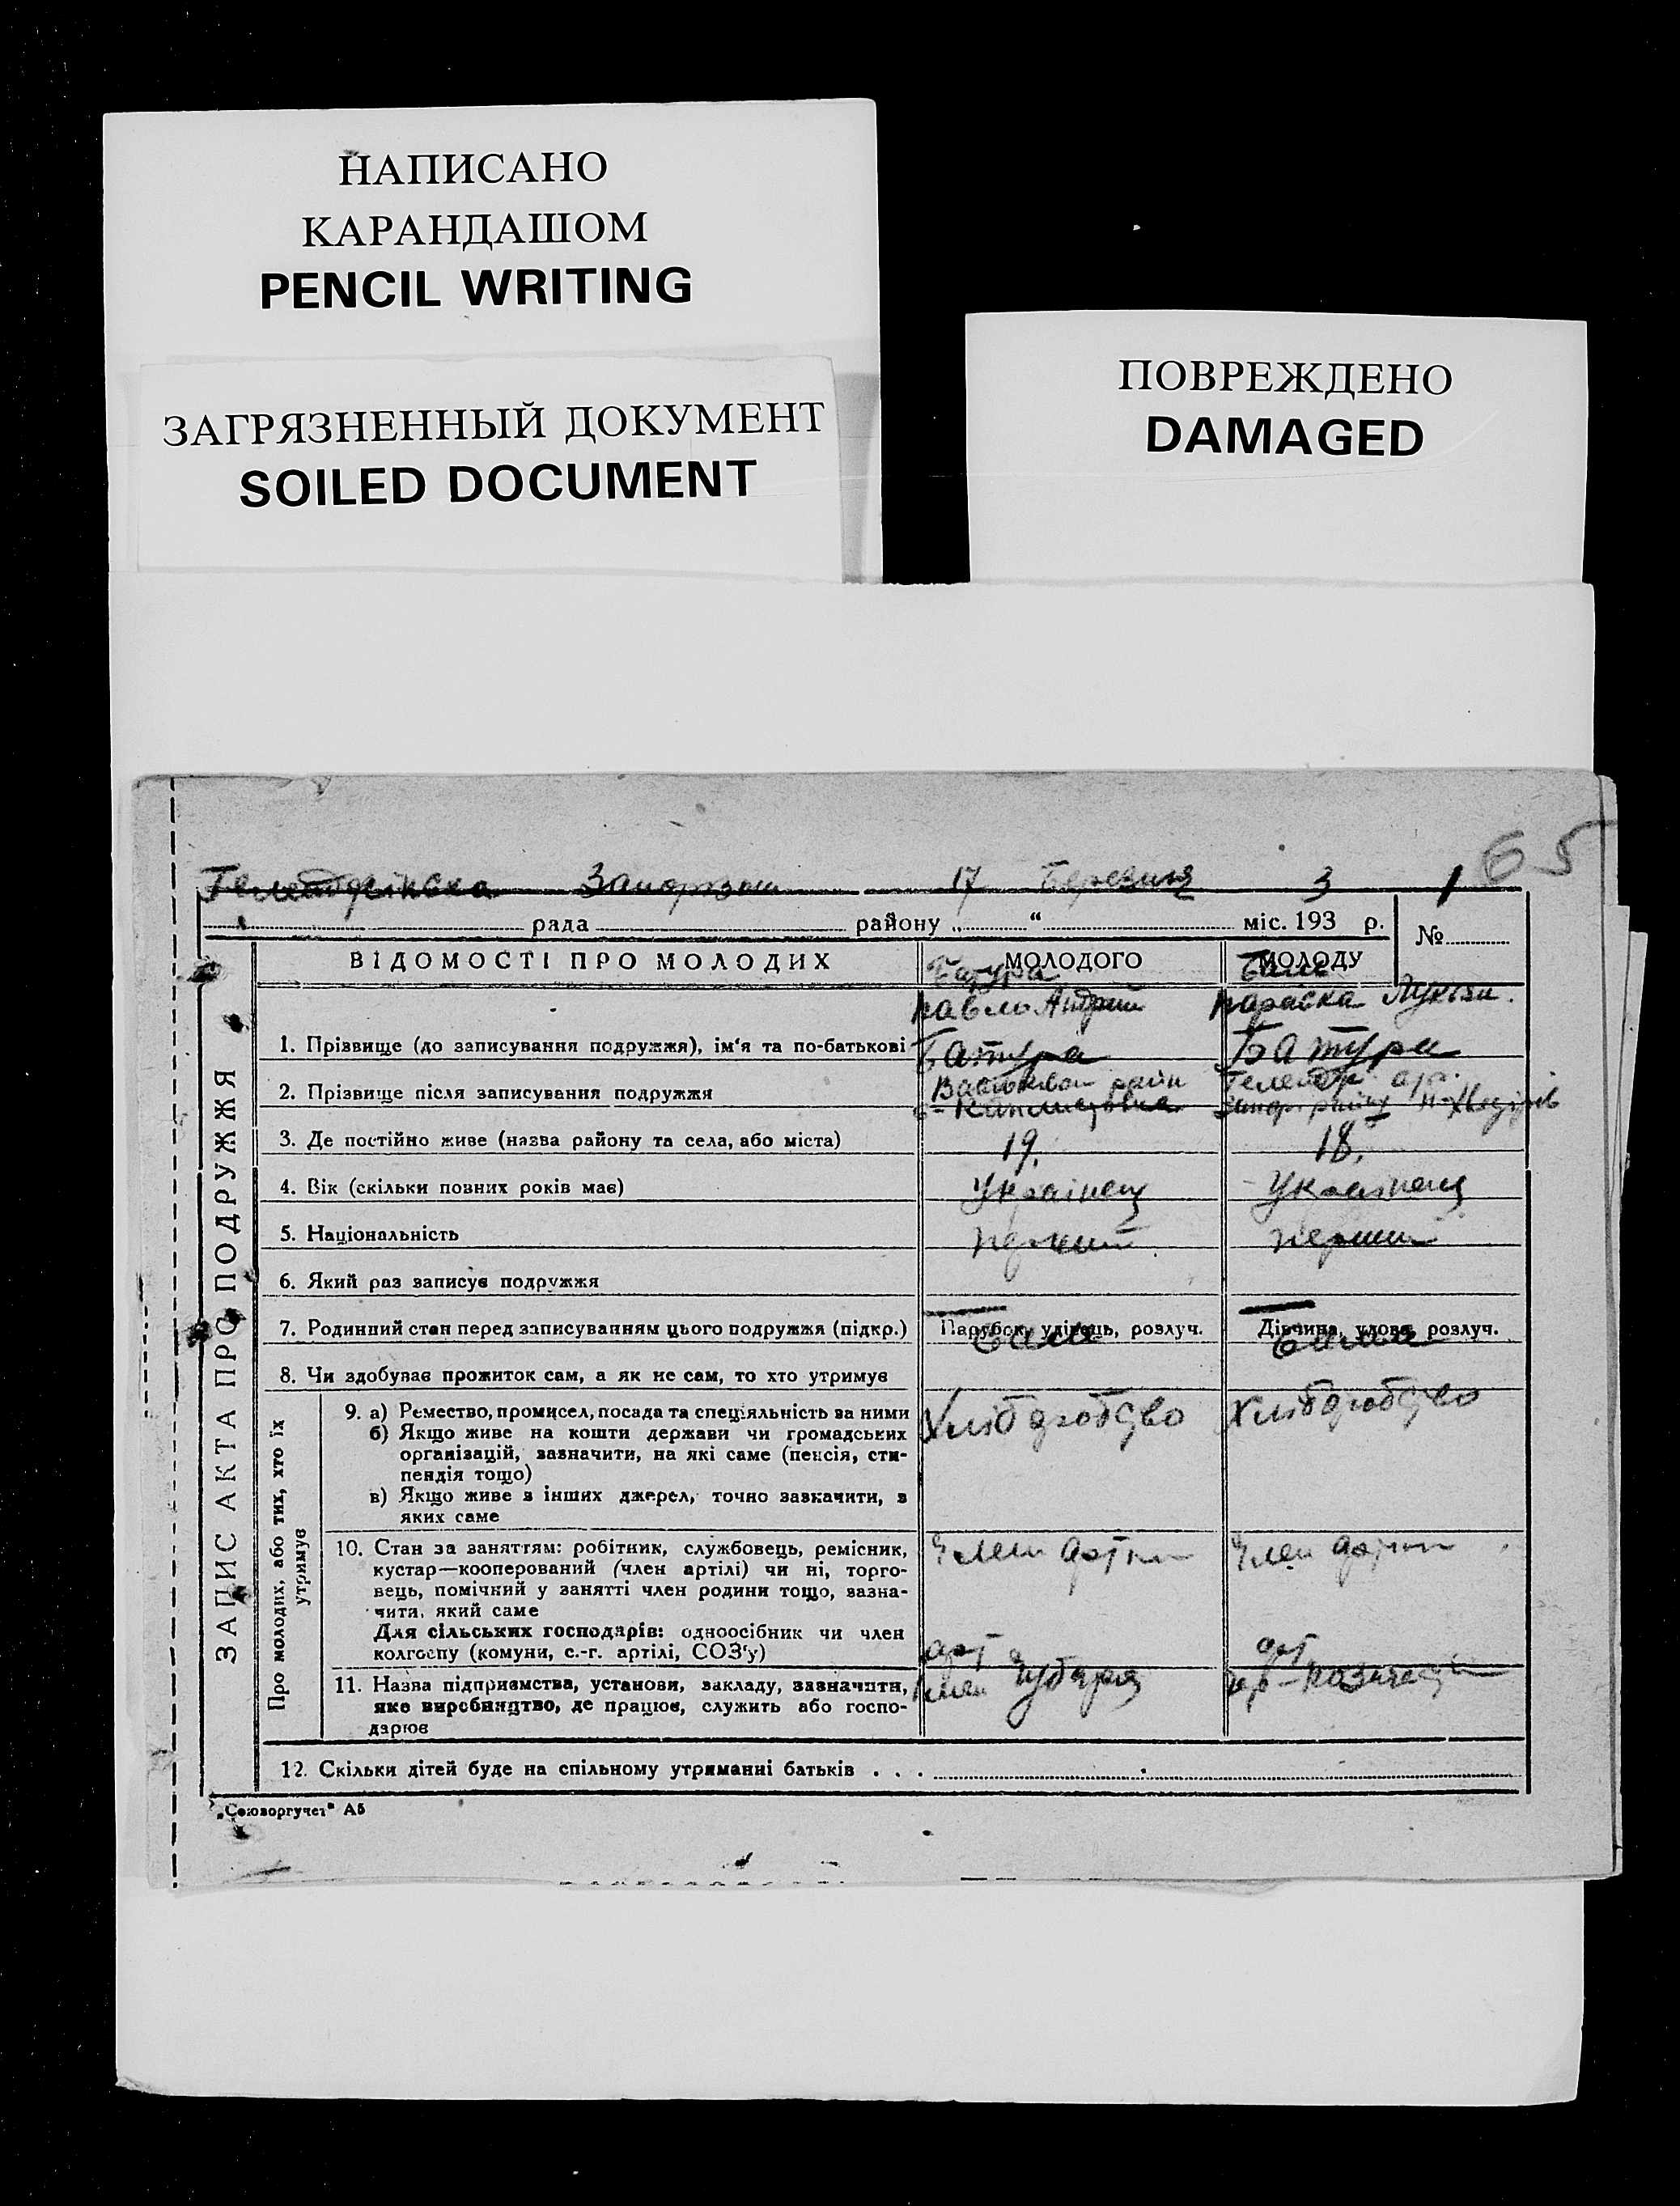 НАПИСАНО
КАРАНДАШОМ
PENCIL WRITING
ЗАГРЯЗНЕННЫЙ ДОКУМЕНТ
SOILED DOCUMENT
ПОВРЕЖДЕНО
DAMAGED
65
17 Березня 3 1
рада району „ “ міс. 193 р. №
ВІДОМОСТІ ПРО МОЛОДИХ МОЛОДОГО МОЛОДУ
Батура
Павло Андрій Параска Лукян.
1. Прізвище (до записування подружжя), ім‘я та по-батькові Батура Батура
2. Прізвище після записування подружжя
3. Де постійно живе (назва району та села, або міста) 19. 18.
4. Вік (скільки повних років має) Українец Українец
5. Національність перший перший
6. Який раз записує подружжя
7. Родинний стан перед записуванням цього подружжя (підкр.) Парубок, удівець, розлуч. Дівчина, удова, розлуч.
сам сама
8. Чи здобуває прожиток сам, а як не сам, то хто утримує
ЗАПИС АКТА ПРО ПОДРУЖЖЯ
Про молодих, або тих, хто їх утримує
9. а) Ремество, промисел, посада та спеціяльність за ними Хліборобство Хліборобство
б) Якщо живе на кошти держави чи громадських
організацій, зазначити, на які саме (пенсія, сти-
пендія тощо)
в) Якщо живе з інших джерел, точно зазначити, з
яких саме
10. Стан за заняттям: робітник, службовець, ремісник, Член артіли Член артіли
кустар—кооперований (член артілі) чи ні, торго-
вець, помічний у занятті член родини тощо, вазна-
чити, який саме
Для сільських господарів: одноосібник чи член
колгоспу (комуни, с.-г. артілі, СОЗ‘у) арт арт
11. Назва підприємства, установи, закладу, зазначити, Чубаря
яке виробництво, де працює, служить або госпо-
дарює
12. Скільки дітей буде на спільному утриманні батьків . . .
„Союзоргучет“ А5